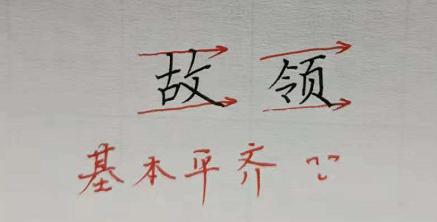 故 领
基本平齐